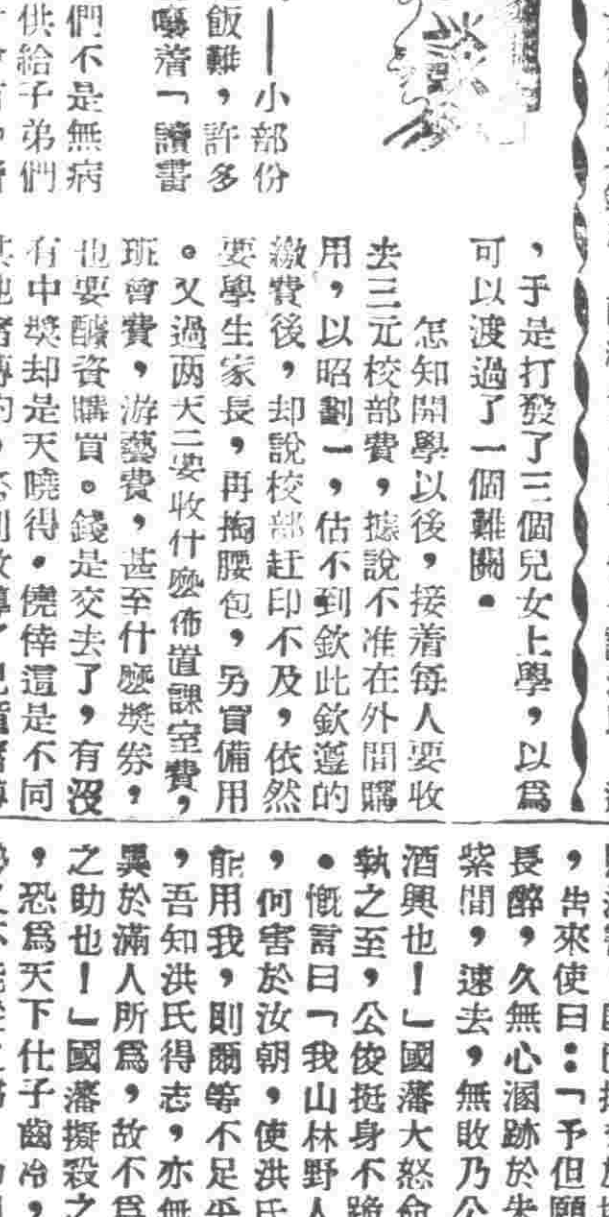 小部份
飯難，許多
着「讀書
們不是無病
供給子弟們
，于是打發了三個兒女上學，以爲
可以渡過了一個難關．
怎知開學以後，接着每人要收
去三元校部費，據說不准在外間購
用，以昭劃一，估不到欽此欽遵的
繳費後，却說校部赶印不及，依然
要學生家長，再掏腰包，另買備用
。又過两天二要收什麼佈置課室費，
班會費，游藝費，甚至什麼獎券，
也要醵資購買。錢是交去了，有沒
有中獎却是天曉得．僥倖這是不同
，告來使曰：「予但願
長醉，久無心溷跡於朱
紫間，速去，無敗乃公
酒興也！」國藩大怒命
執之至，公俊挺身不跪
．慨言曰「我山林野人
，何害於汝朝，使洪氏
能用我，則爾等不足平
，吾知洪氏得志，亦無
異於滿人所爲，故不爲
之助也！」國藩擬殺之
，恐爲天下仕子齒冷，